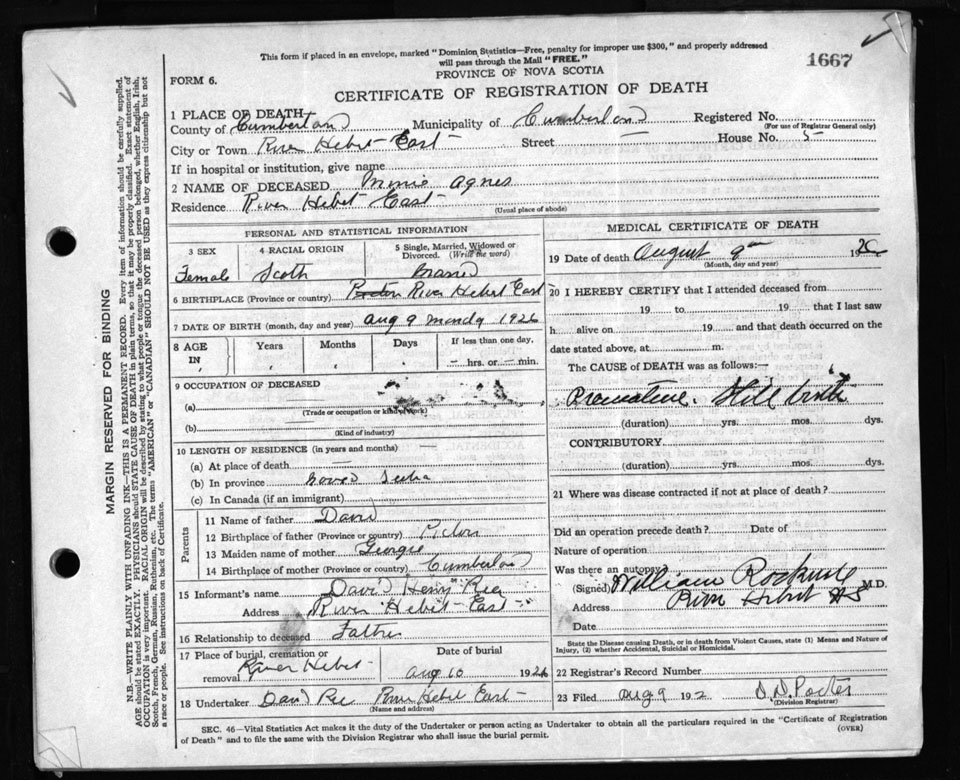 This form if placed in an envelope, marked "Dominion Statistics—Free, penalty for improper use $300," and properly addressed
will pass through the Mail "FREE."
1667
PROVINCE OF NOVA SCOTIA
FORM 6.
CERTIFICATE OF REGISTRATION OF DEATH
1 PLACE OF DEATH—
County of Cumberland Municipality of Cumberland Registered No.
(For use of Registrar General only)
City or Town River Hebert East Street — House No. 5
If in hospital or institution, give name
2 NAME OF DECEASED Agnes
Residence River Hebert East
(Usual place of abode)
PERSONAL AND STATISTICAL INFORMATION
3 SEX Female
4 RACIAL ORIGIN Scoth
5 Single, Married, Widowed or Divorced. (Write the word)
6 BIRTHPLACE (Province or country) River Hebert East
7 DATE OF BIRTH (month, day and year) Aug 9 Monday 1926
8 AGE IN Years Months Days If less than one day.
— hrs. or — min.
9 OCCUPATION OF DECEASED
(a)
(Trade or occupation or kind of work)
(b)
(Kind of industry)
10 LENGTH OF RESIDENCE (in years and months) —
(a) At place of death —
(b) In province Nova Scotia
(c) In Canada (if an immigrant)
Parents
11 Name of father David
12 Birthplace of father (Province or country) Pictou
13 Maiden name of mother Georgie
14 Birthplace of mother (Province or country) Cumberland
15 Informant's name David Henry Ree
Address River Hebert East
16 Relationship to deceased Father
17 Place of burial, cremation or removal River Hebert
Date of burial
Aug 10 1926
18 Undertaker David Ree River Hebert East
(Name and address)
MEDICAL CERTIFICATE OF DEATH
19 Date of death August 9th 1926
(Month, day and year)
20 I HEREBY CERTIFY that I attended deceased from
19 to 19 that I last saw
h alive on 19 and that death occurred on the
date stated above, at m.
The CAUSE of DEATH was as follows:—
Premature. Still birth
(duration) yrs. mos. dys.
CONTRIBUTORY
(duration) yrs. mos. dys.
21 Where was disease contracted if not at place of death?
Did an operation precede death? Date of
Nature of operation
Was there an autopsy
(Signed) William Rockwell M.D.
Address River Hebert NS
Date
State the Disease causing Death, or in death from Violent Causes, state (1) Means and Nature of
Injury, (2) whether Accidental, Suicidal or Homicidal.
22 Registrar's Record Number
23 Filed Aug 9 192 Porter
(Division Registrar)
SEC. 46—Vital Statistics Act makes it the duty of the Undertaker or person acting as Undertaker to obtain all the particulars required in the "Certificate of Registration
of Death" and to file the same with the Division Registrar who shall issue the burial permit. (OVER)
MARGIN RESERVED FOR BINDING
N.B.—WRITE PLAINLY WITH UNFADING INK—THIS IS A PERMANENT RECORD. Every item of information should be carefully supplied.
AGE should be stated EXACTLY. PHYSICIANS should STATE CAUSE OF DEATH in plain terms, so that it may be properly classified. Exact statement of
OCCUPATION is very important. RACIAL ORIGIN will be described by stating to what people or tongue the deceased person belonged, whether English, Irish,
Scotch, French, German, Russian, Ruthenian, etc. The terms "AMERICAN" or "CANADIAN" SHOULD NOT BE USED as they express citizenship but not
a race or people. See instructions on back of Certificate.